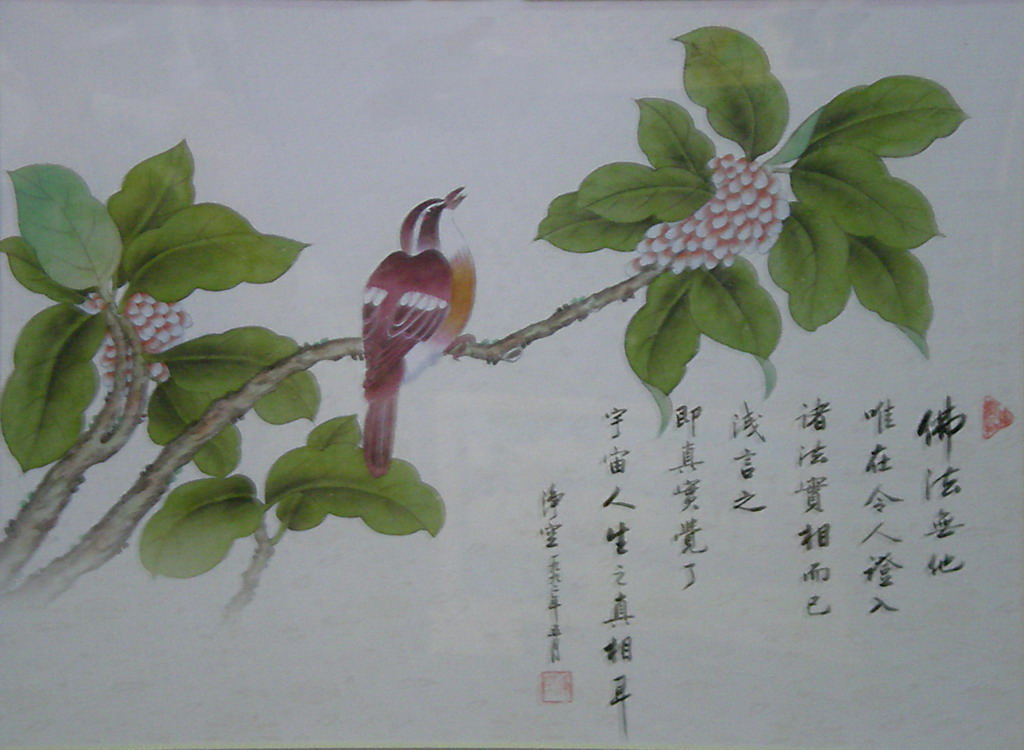 佛法無他
唯在令人證入
诸法實相而已
浅言之
即真实覺了
宇宙人生之真相耳
淨空一九九二年五月